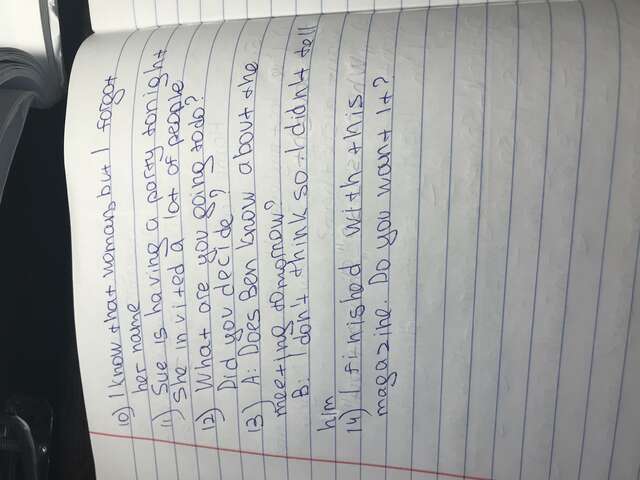 10) I know that womans but I forgot
her name
11) Sue is having a party tonight
She invited a lot of people
12) What are you going to do?
Did you decide?
13) A: Does Ben know about the
meeting tomorrow?
B: I don't think so I didn't tell
him
14) I finished with this
magazine. Do you want it?